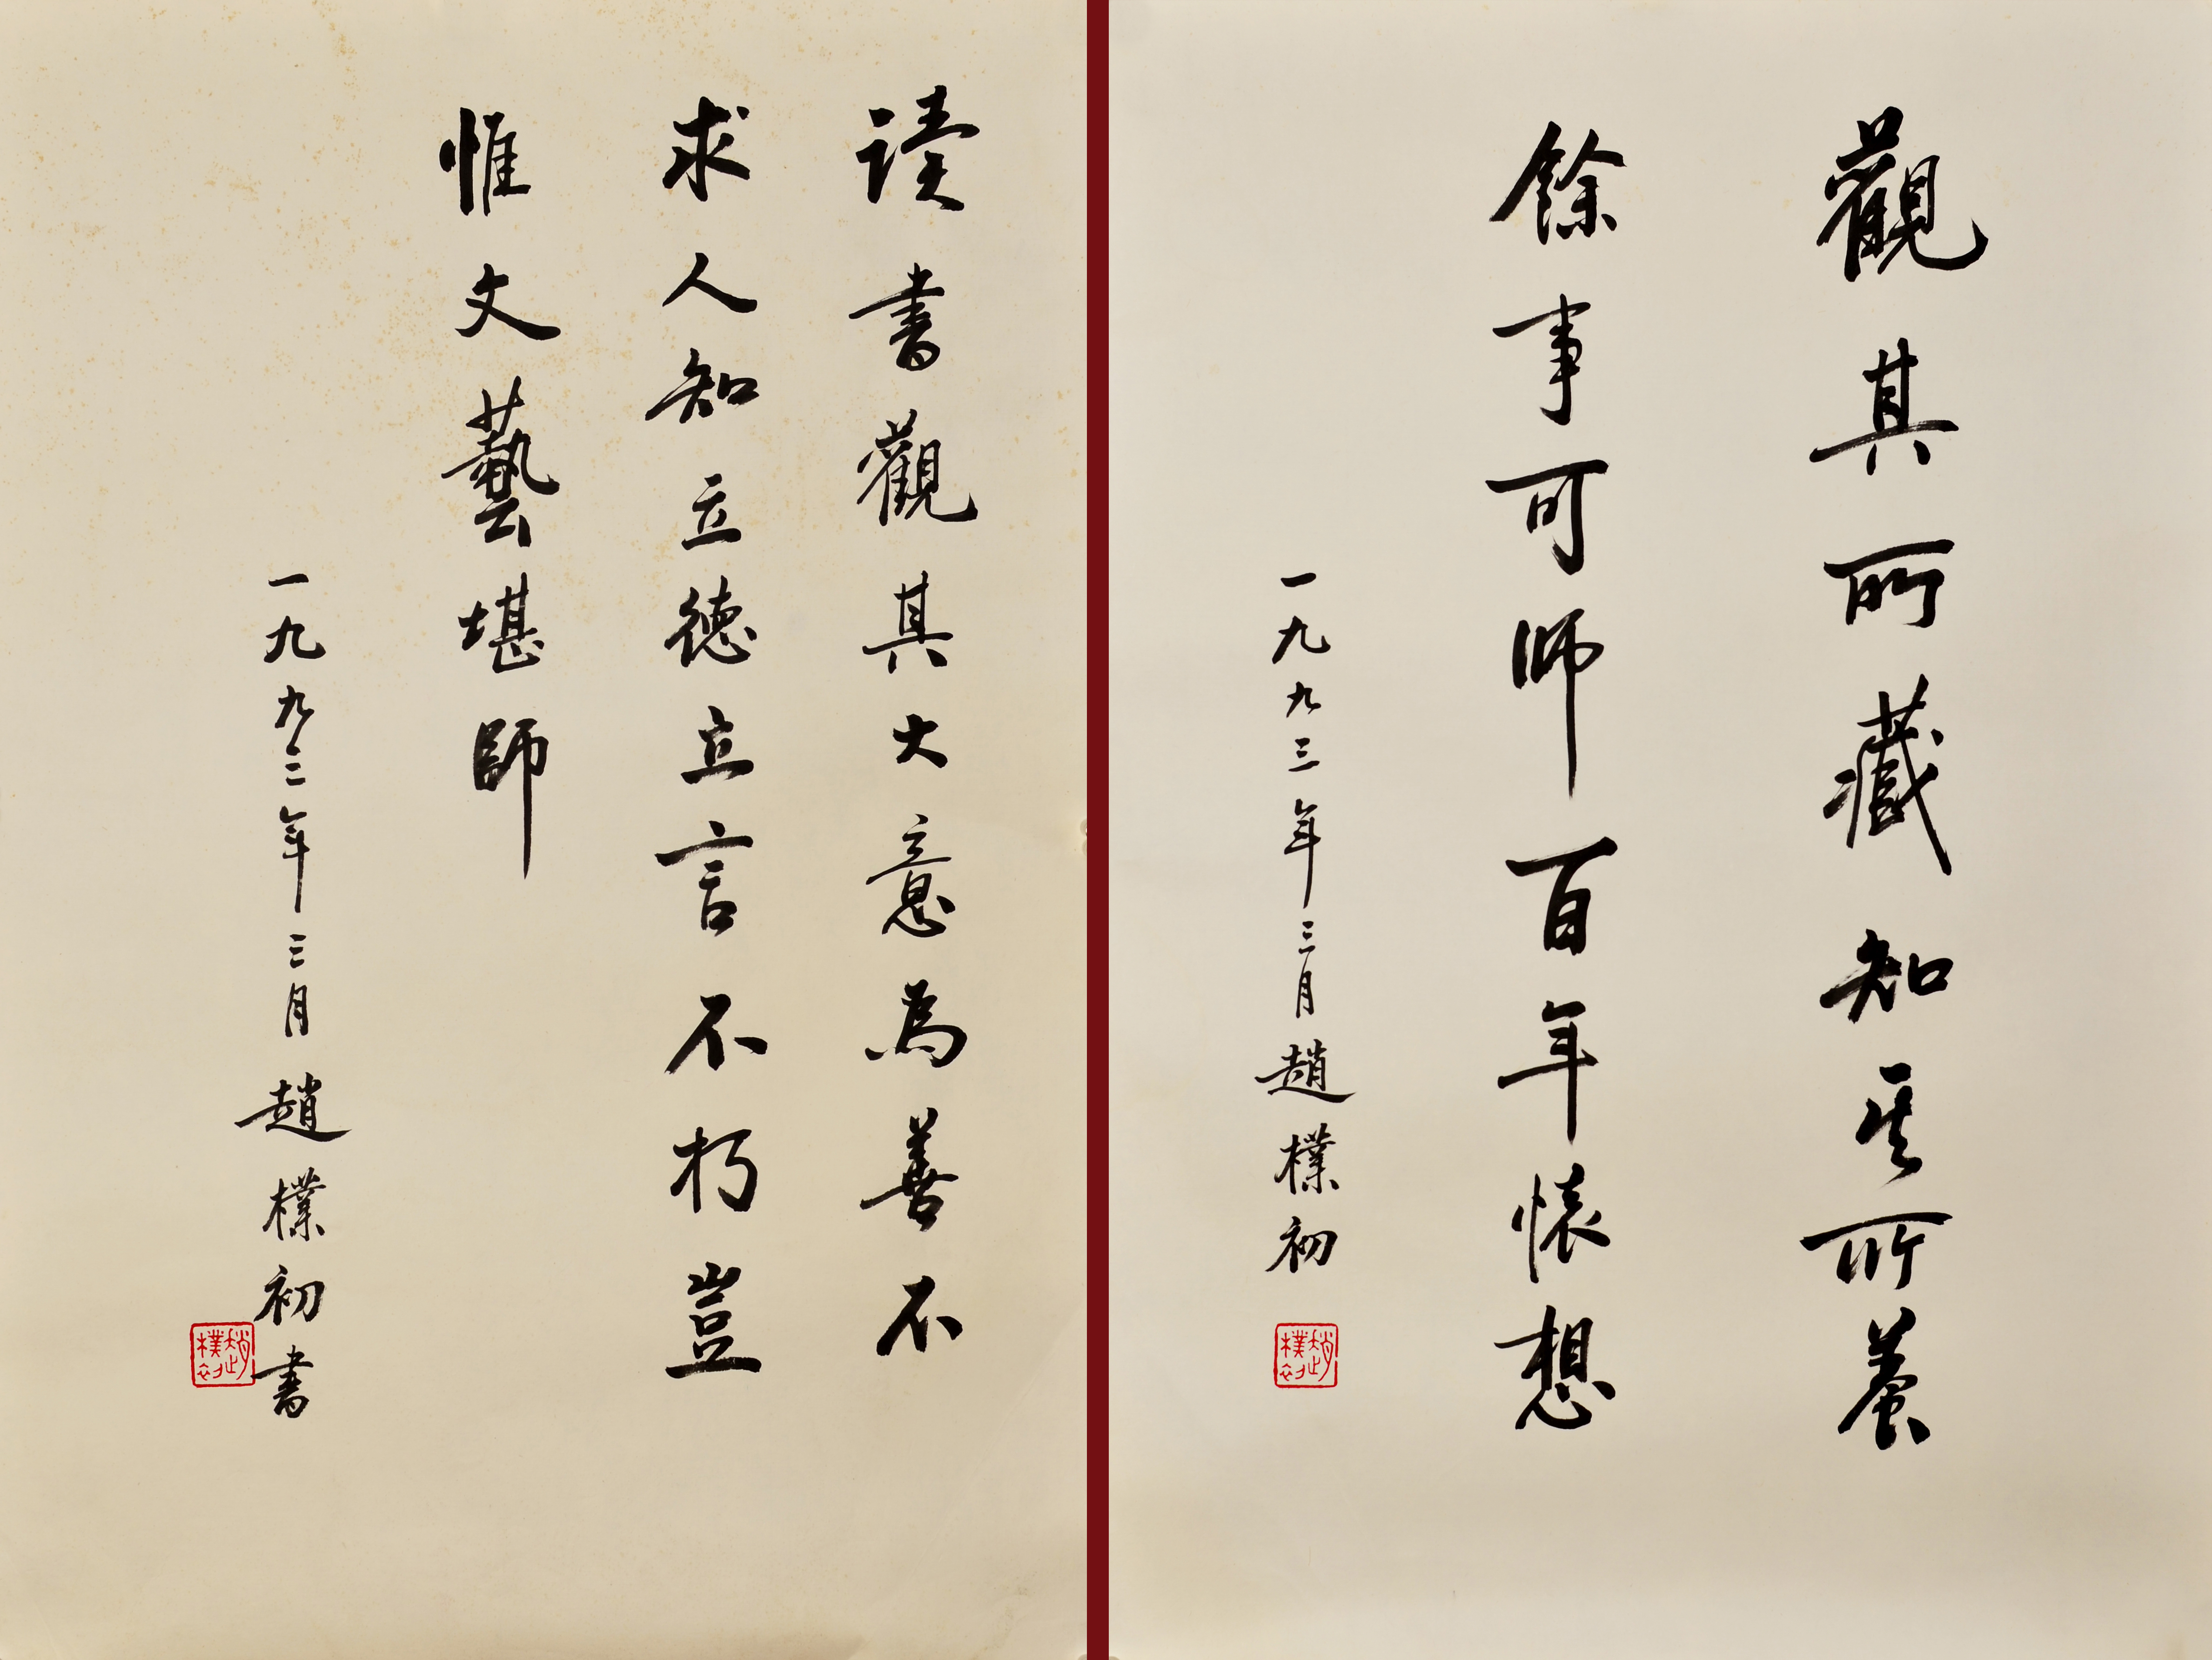 觀其所藏知其所養
餘事可師百年懷想
一九九三年三月趙樸初
趙樸初
读書觀其大意為善不
求人知立德立言不朽豈
惟文藝堪師
一九九三年三月趙樸初書
趙樸初